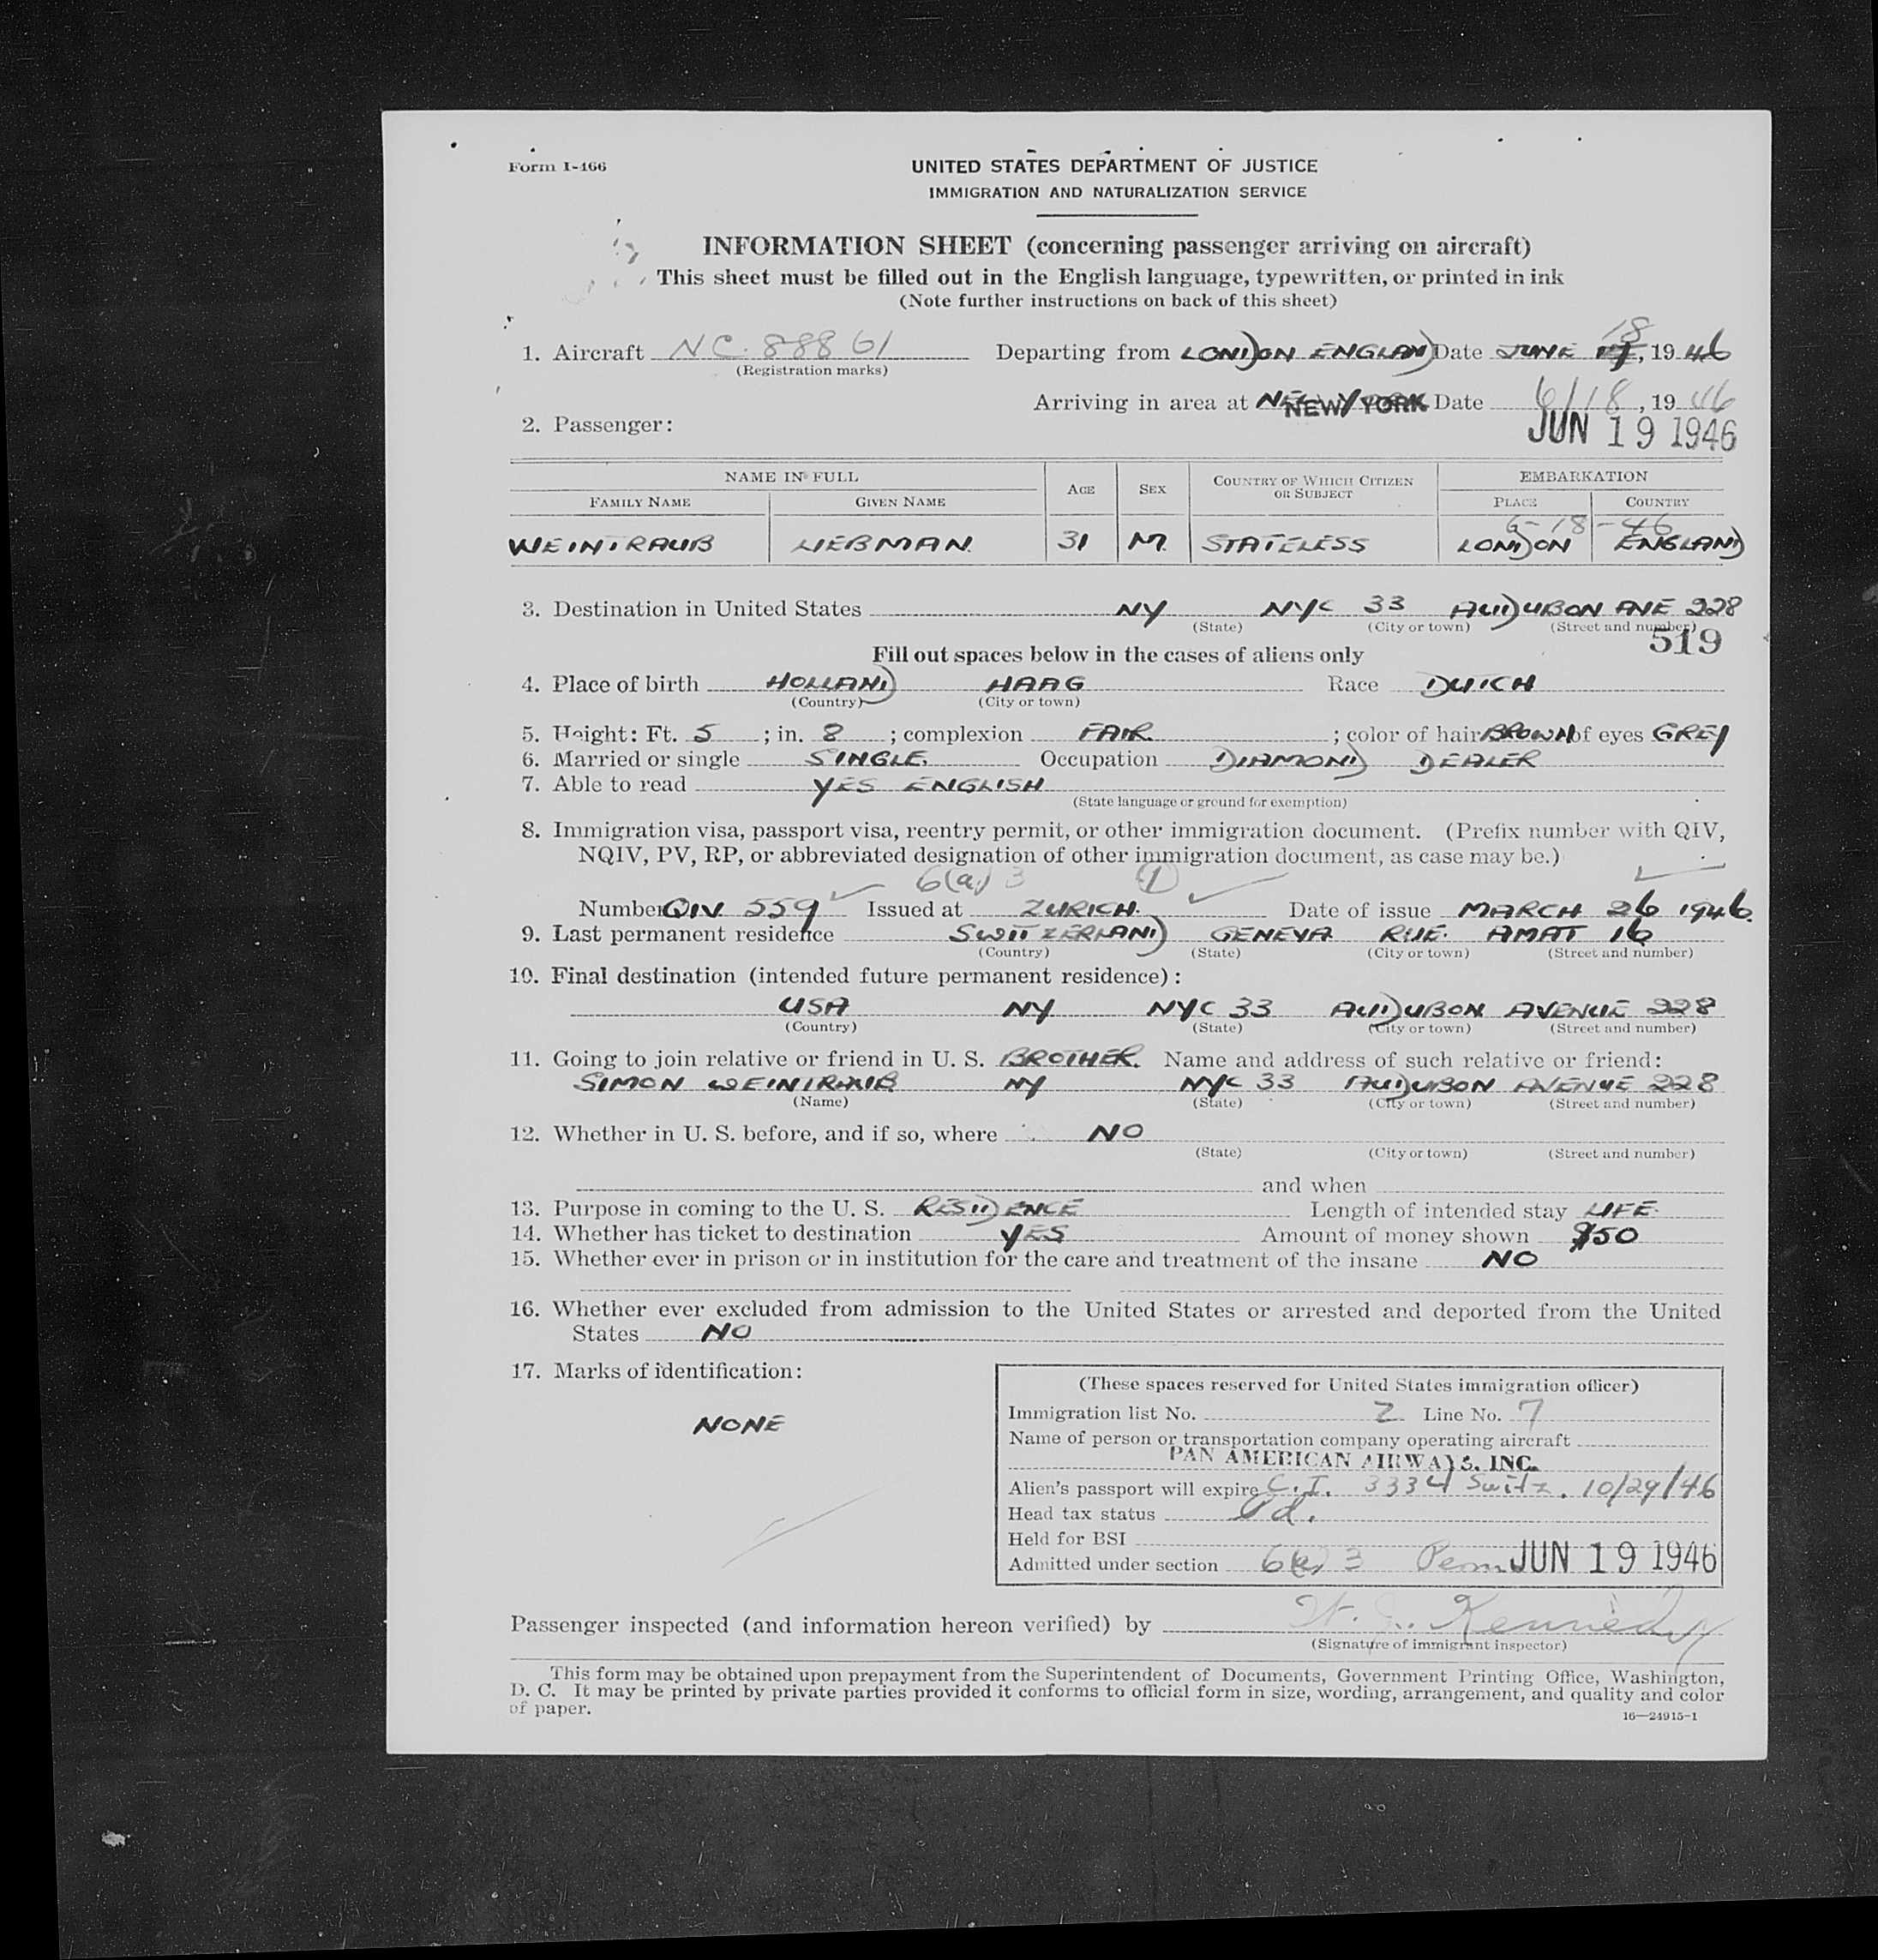 Form I-466
UNITED STATES DEPARTMENT OF JUSTICE
IMMIGRATION AND NATURALIZATION SERVICE
INFORMATION SHEET (concerning passenger arriving on aircraft)
This sheet must be filled out in the English language, typewritten, or printed in ink
(Note further instructions on back of this sheet)
18
1. Aircraft NC 88861 Departing from LONDON ENGLAND Date JUNE , 1946
(Registration marks)
Arriving in area at NEW YORK Date 6/18, 1946
2. Passenger: JUN 19 1946
NAME IN FULL AGE SEX COUNTRY OF WHICH CITIZEN OR SUBJECT EMBARKATION
FAMILY NAME GIVEN NAME PLACE COUNTRY
6-18-46
WEINTRAUB LIEBMAN 31 M. STATELESS LONDON ENGLAND
3. Destination in United States NY NYC 33 AUDUBON AVE 228
(State) (City or town) (Street and number)
519
Fill out spaces below in the cases of aliens only
4. Place of birth HOLLAND HAAG Race DUTCH
(Country) (City or town)
5. Height: Ft. 5 ; in. 8 ; complexion FAIR ; color of hair BROWN of eyes GREY
6. Married or single SINGLE. Occupation DIAMOND DEALER
7. Able to read YES ENGLISH
(State language or ground for exemption)
8. Immigration visa, passport visa, reentry permit, or other immigration document. (Prefix number with QIV,
NQIV, PV, RP, or abbreviated designation of other immigration document, as case may be.)
6(a) 3 1
Number QIV 559 Issued at ZURICH. Date of issue MARCH 26 1946.
9. Last permanent residence SWITZERLAND GENEVA RUE. AMAT 16
(Country) (State) (City or town) (Street and number)
10. Final destination (intended future permanent residence):
USA NY NYC 33 AUDUBON AVENUE 228
(Country) (State) (City or town) (Street and number)
11. Going to join relative or friend in U. S. BROTHER. Name and address of such relative or friend:
SIMON WEINTRAUB NY NYC 33 AUDUBON AVENUE 228
(Name) (State) (City or town) (Street and number)
12. Whether in U. S. before, and if so, where NO
(State) (City or town) (Street and number)
and when
13. Purpose in coming to the U. S. RESIDENCE Length of intended stay LIFE.
14. Whether has ticket to destination YES Amount of money shown $50
15. Whether ever in prison or in institution for the care and treatment of the insane NO
16. Whether ever excluded from admission to the United States or arrested and deported from the United
States NO
17. Marks of identification:
NONE
(These spaces reserved for United States immigration officer)
Immigration list No. 2 Line No. 7
Name of person or transportation company operating aircraft
PAN AMERICAN AIRWAYS, INC.
Alien's passport will expire C.I. 3334 Switz. 10/29/46
Head tax status Pd.
Held for BSI
Admitted under section 6(a) 3 Perm JUN 19 1946
Passenger inspected (and information hereon verified) by Kennedy
(Signature of immigrant inspector)
This form may be obtained upon prepayment from the Superintendent of Documents, Government Printing Office, Washington,
D. C. It may be printed by private parties provided it conforms to official form in size, wording, arrangement, and quality and color
of paper.
16—24915-1